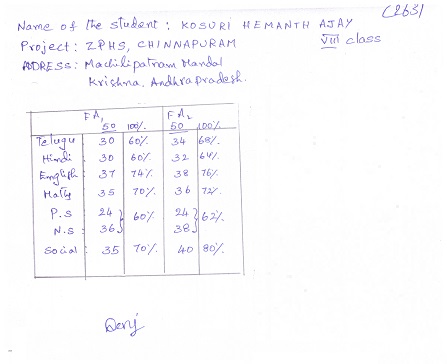 (263)
Name of the student : KOSURI HEMANTH AJAY
Project : ZPHS, CHINNAPURAM VIII class
ADRESS : Machilipatnam Mandal
Krishna, Andhra Pradesh.
FA1 FA2
50 100%. 50 100%.
Telugu 30 60%. 34 68%.
Hindi 30 60%. 32 64%.
English 37 74%. 38 76%.
Maths 35 70%. 36 72%.
P.S 24 } 60%. 24 } 62%.
N.S 36 38
Social 35 70%. 40 80%.